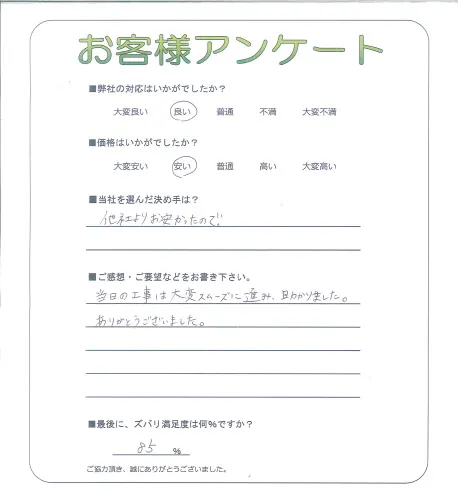 お客様アンケート
■弊社の対応はいかがでしたか？
大変良い 良い 普通 不満 大変不満
■価格はいかがでしたか？
大変安い 安い 普通 高い 大変高い
■当社を選んだ決め手は？
他社よりお安かったので！
■ご感想・ご要望などをお書き下さい。
当日の工事は大変スムーズに進み、助かりました。
ありがとうございました。
■最後に、ズバリ満足度は何％ですか？
85 ％
ご協力頂き、誠にありがとうございました。